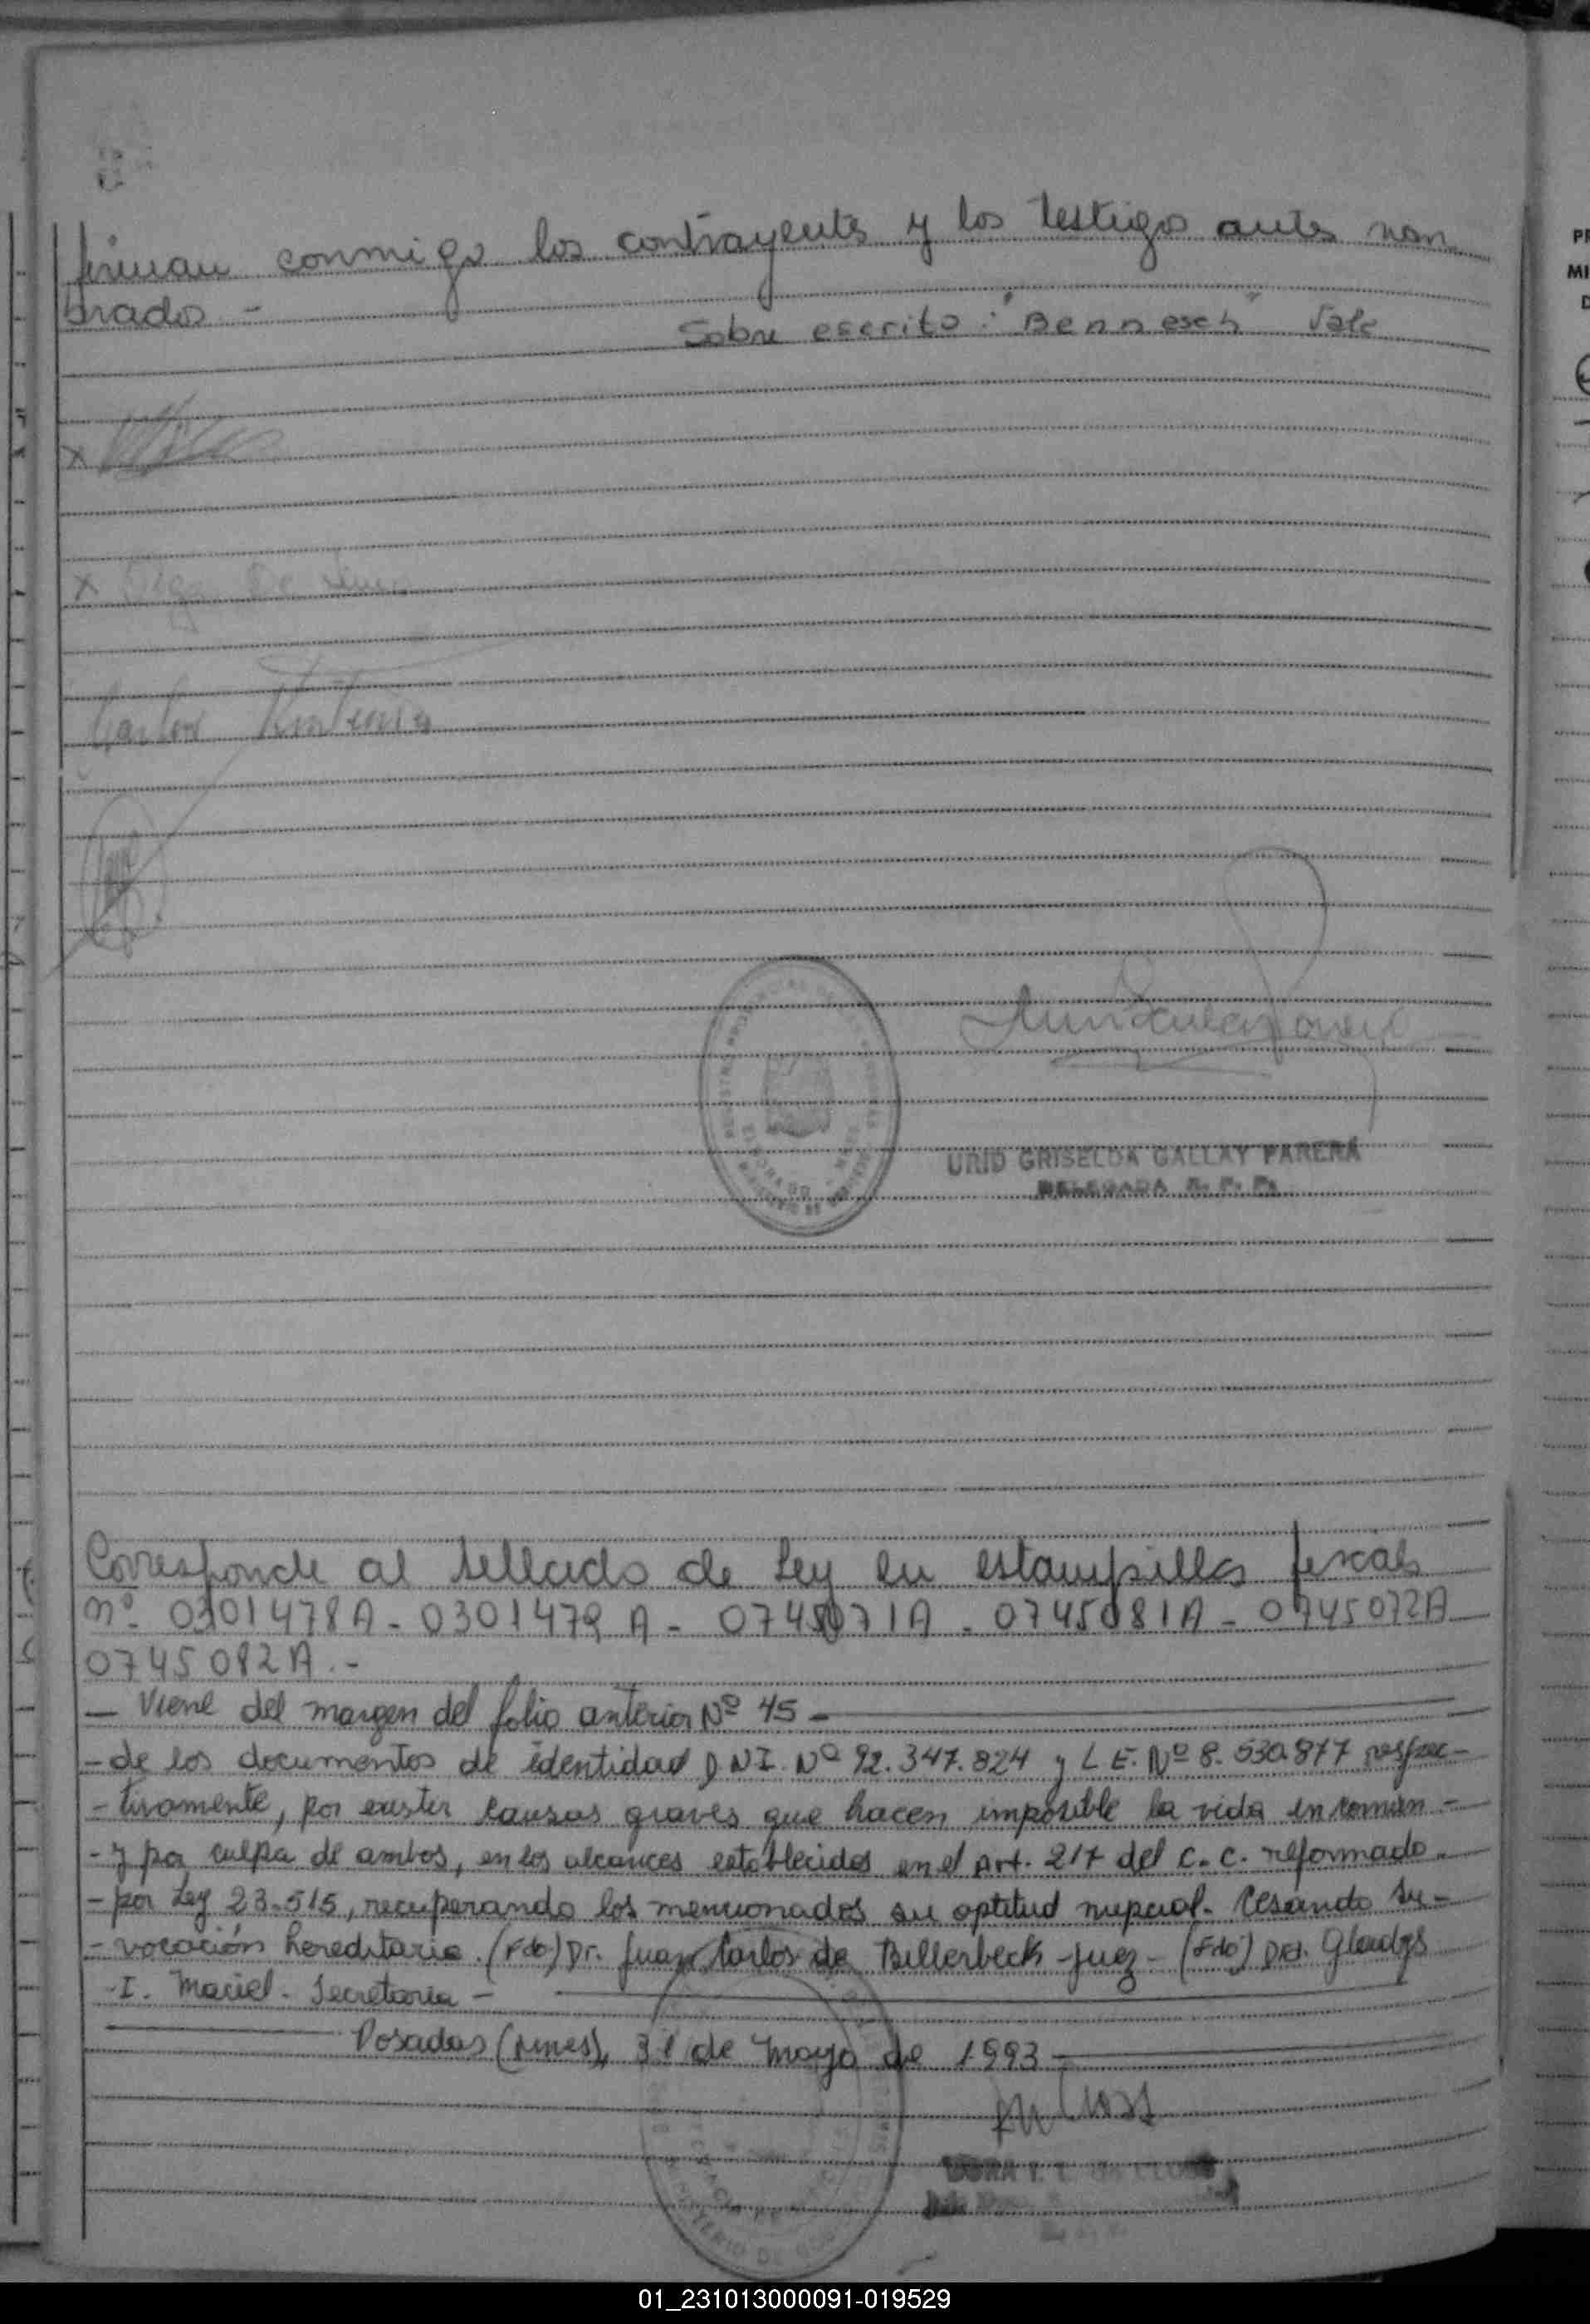 firman conmigo los contrayentes y los testigos antes nom
brados -
Sobre escrito: "Bennesch" Vale
x
x
Carlos Antonio
URID GRISELDA GALLAY PARERA
DELEGADA R. P. P.
Corresponde al sellado de Ley en estampillas fiscales
nº 0301478A - 0301479A - 0745071A - 0745081A - 0745072A
0745082A.-
- Viene del margen del folio anterior Nº 45 -
- de los documentos de identidad D.N.I. Nº 92.347.824 y L.E. Nº 8.530.877 respec-
- tivamente, por existir causas graves que hacen imposible la vida en común -
- y por culpa de ambos, en los alcances establecidos en el Art. 217 del C.C. reformado.
- por Ley 23.515, recuperando los mencionados su aptitud nupcial. Cesando su -
- vocación hereditaria. (Fdo) Dr. Juan Carlos de Billerbeck - Juez - (Fdo) Dra. Gladys
- I. Maciel - Secretaria -
Posadas (Mnes), 31 de Mayo de 1993
01_231013000091-019529